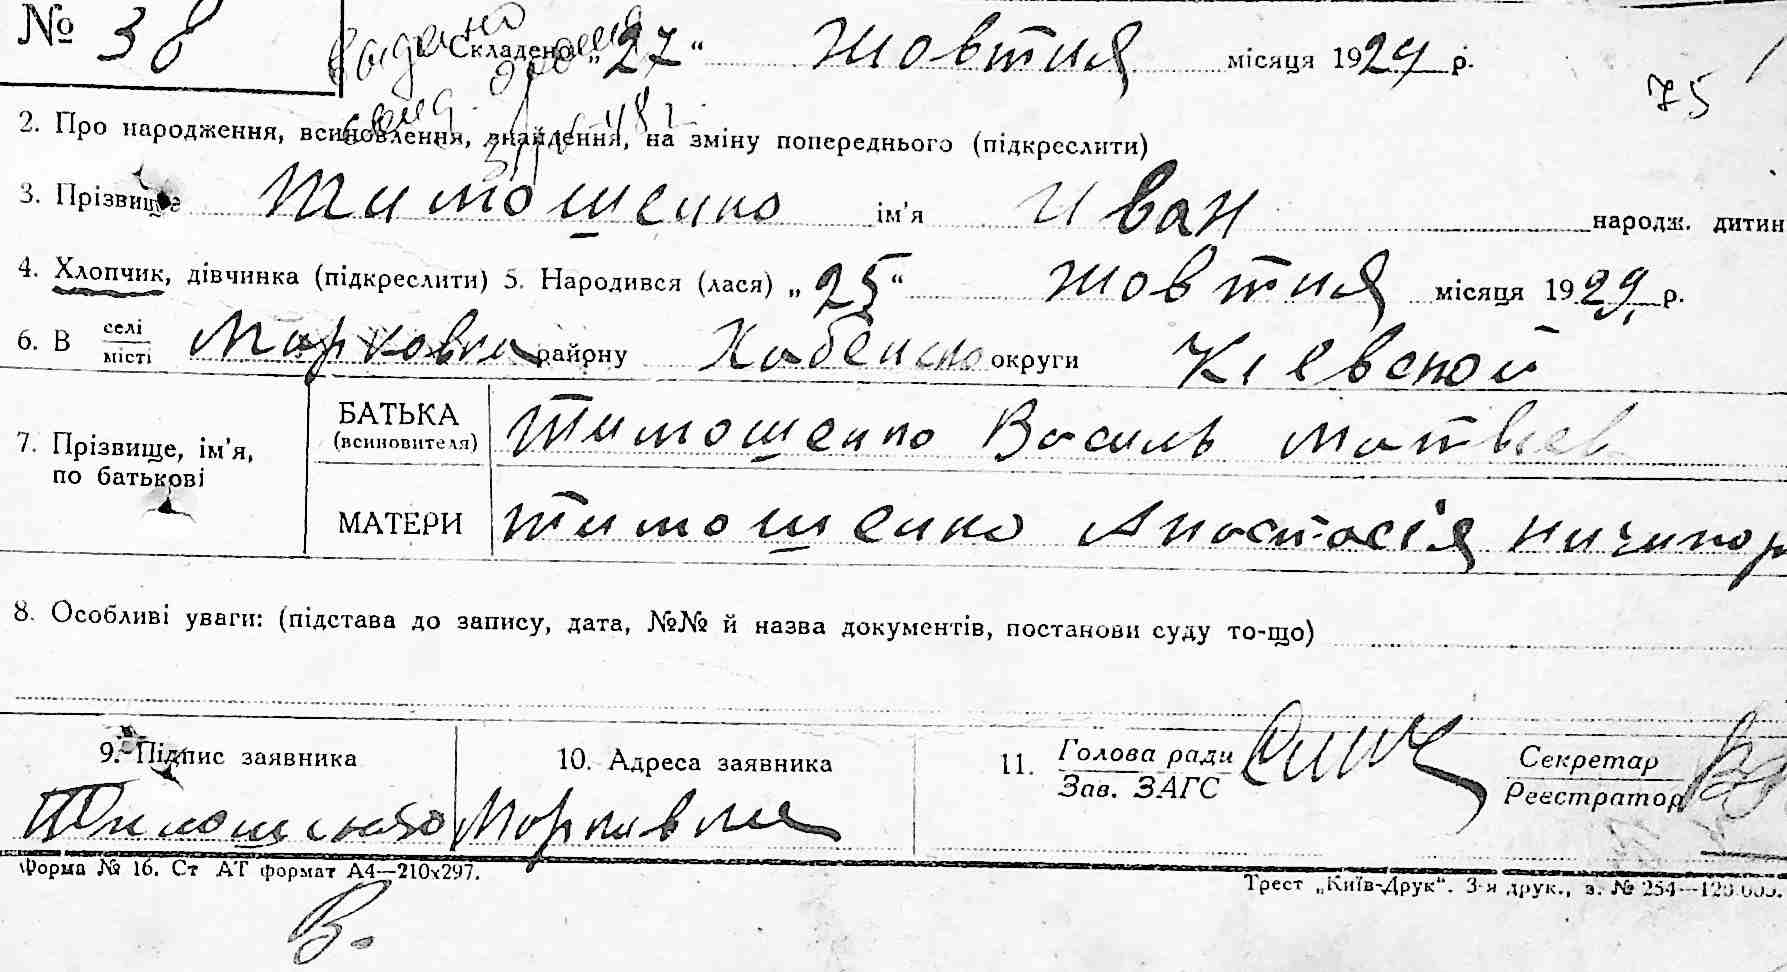 № 38
Складено „27“ жовтня місяця 1929 р.
75
2. Про народження, всиновлення, знайдення, на зміну попереднього (підкреслити)
3. Прізвище Тимошенко ім'я Иван народж. дитин
4. Хлопчик, дівчинка (підкреслити) 5. Народився (лася) „25“ жовтня місяця 1929 р.
6. В селі місті Марковка району Хабенско округи Кіевской
7. Прізвище, ім'я, по батькові
БАТЬКА (всиновителя) Тимошенко Василь Матвіев
МАТЕРИ Тимошенко Анастасія Ничипор
8. Особливі уваги: (підстава до запису, дата, №№ й назва документів, постанови суду то-що)
9. Підпис заявника
Тимошенко
10. Адреса заявника
11. Голова ради Зав. ЗАГС
Секретар Реєстратор
Форма № 16. Ст АТ формат А4—210х297.
Трест „Київ-Друк“. 3-я друк., з. № 254—120.000.
В.